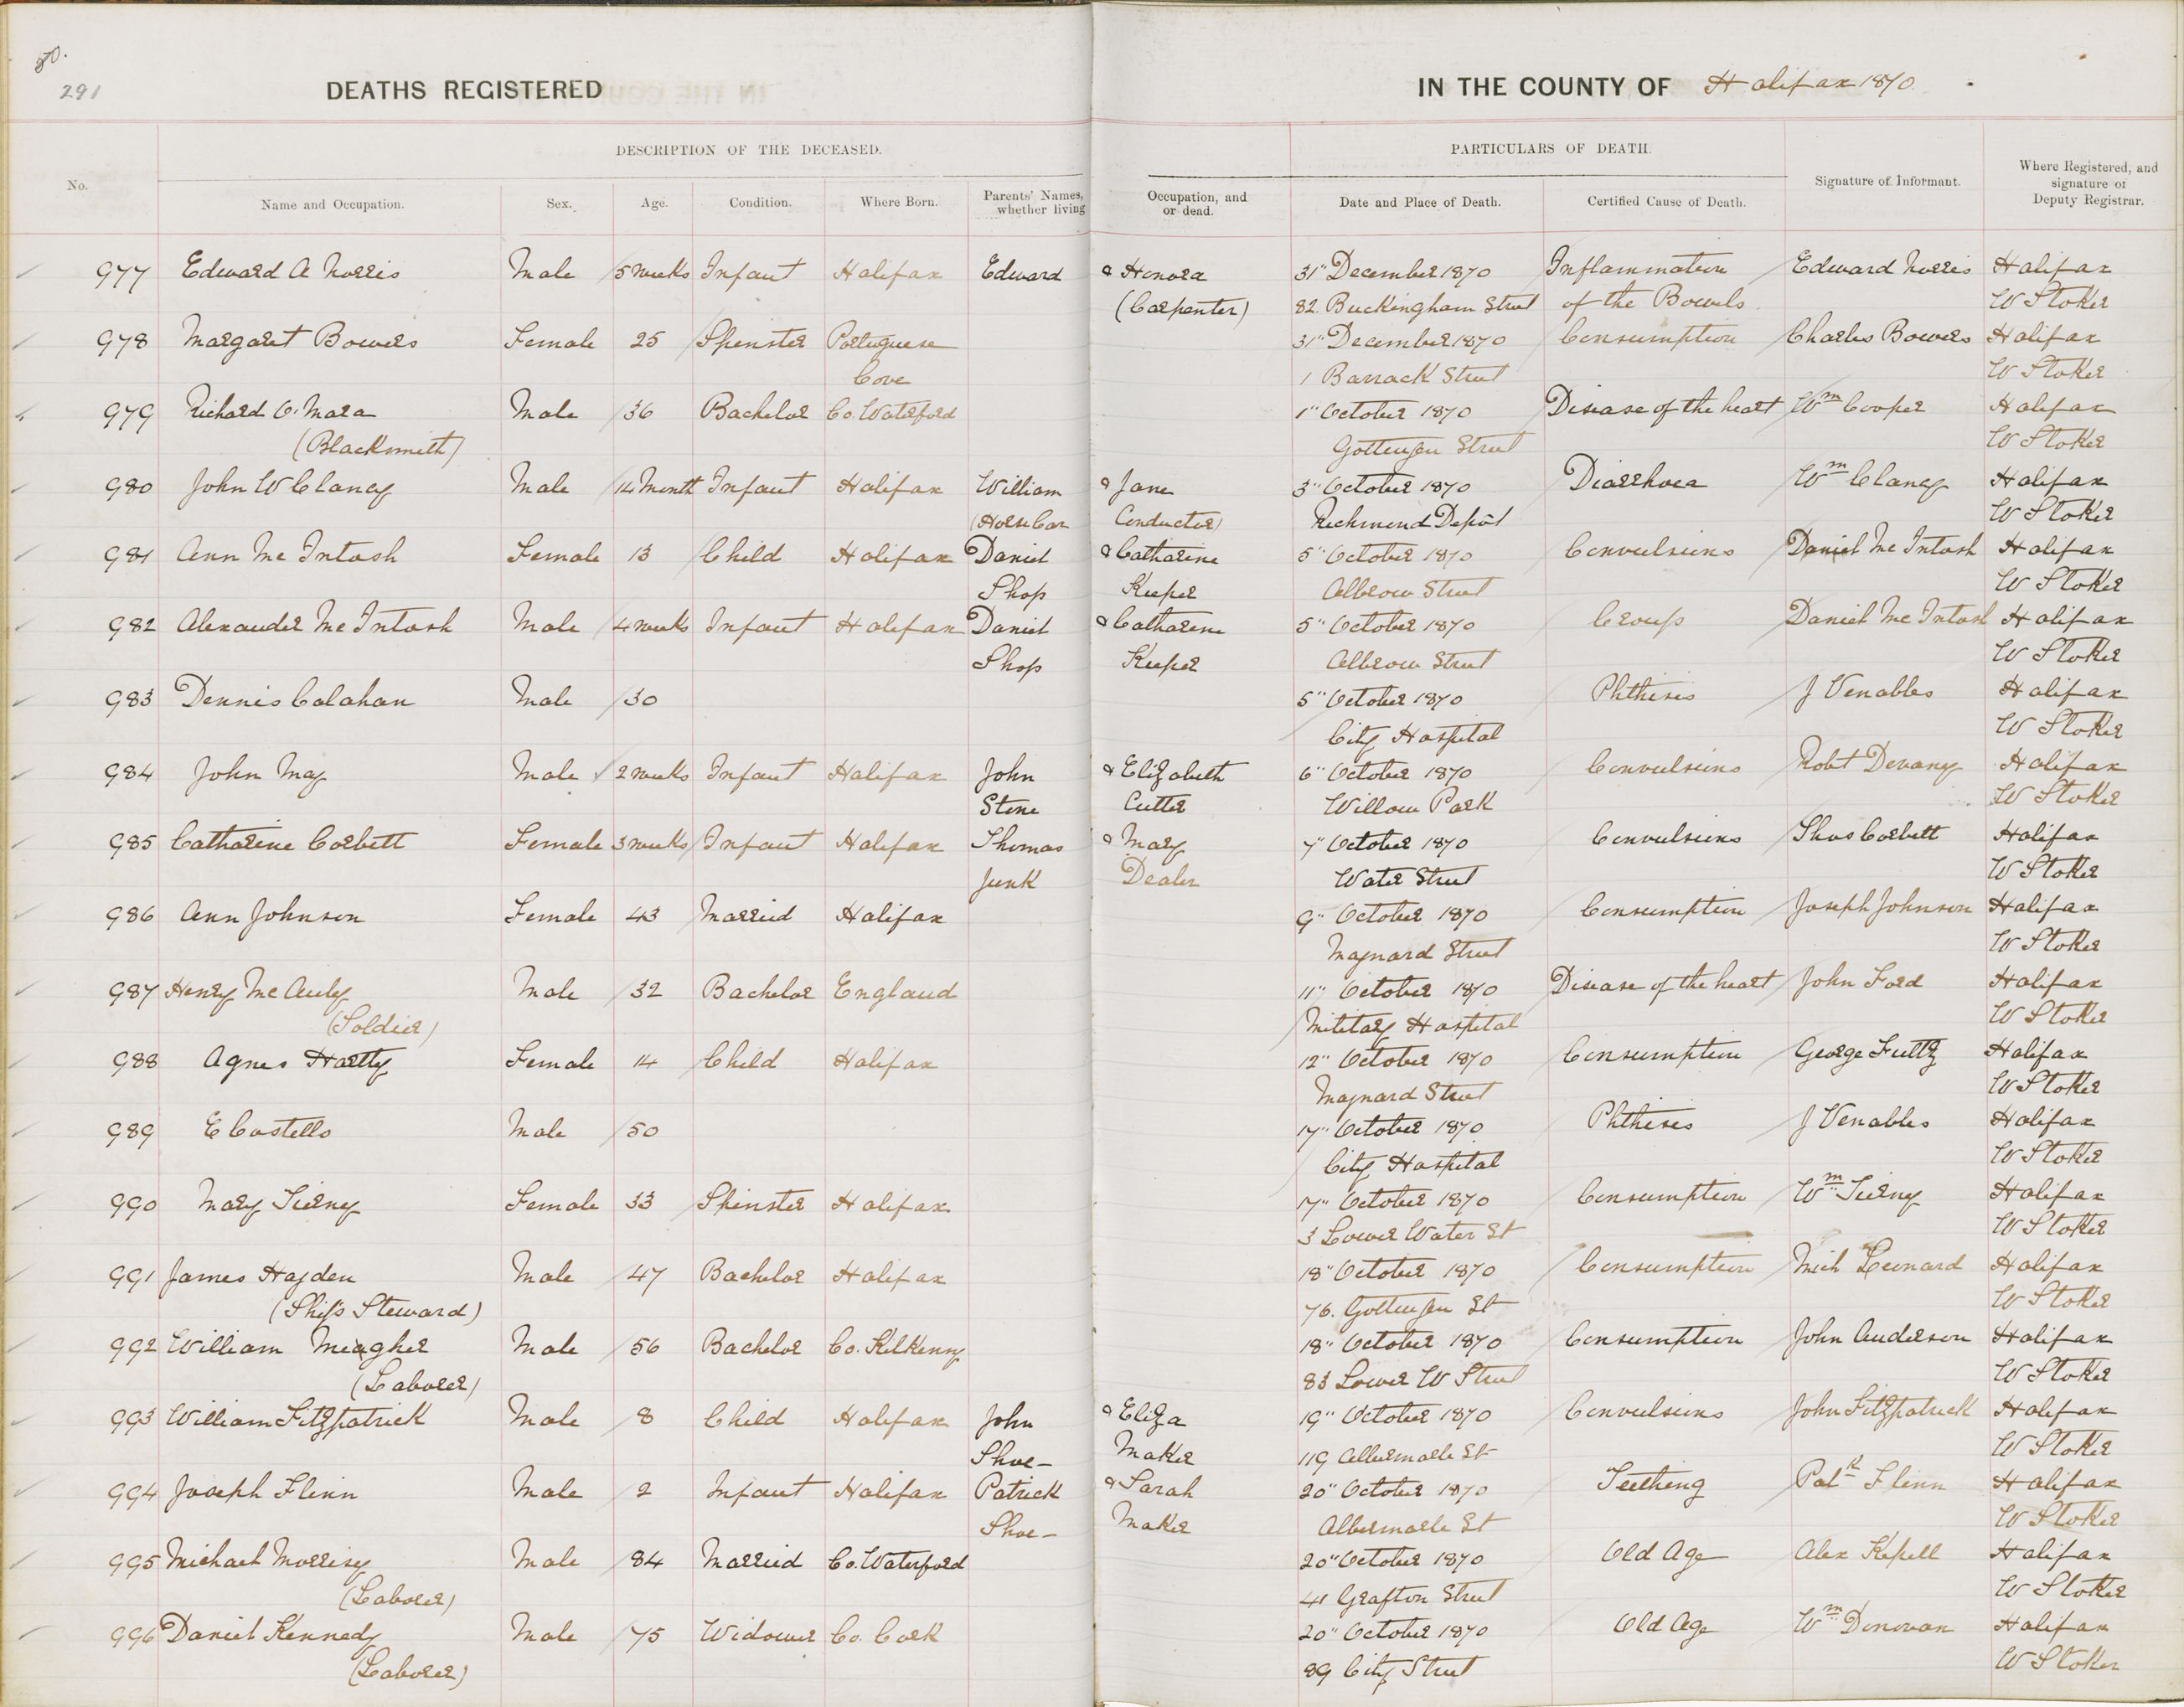 70.
291
DEATHS REGISTERED IN THE COUNTY OF Halifax 1870.
DESCRIPTION OF THE DECEASED. PARTICULARS OF DEATH.
No. Name and Occupation. Sex. Age. Condition. Where Born. Parents' Names, whether living Occupation, and or dead. Date and Place of Death. Certified Cause of Death. Signature of Informant. Where Registered, and signature of Deputy Registrar.
977 Edward A Norris Male 5 weeks Infant Halifax Edward & Honora 31" December 1870 Inflammation Edward Norris Halifax
(Carpenter) 82. Buckingham Street of the Bowels. W Stoker
978 Margaret Bowers Female 25 Spinster Portuguese 31" December 1870 Consumption Charles Bowers Halifax
Cove 1 Barrack Street W Stoker
979 Richard O'Mara Male 36 Bachelor Co. Waterford 1" October 1870 Disease of the heart Wm Cooper Halifax
(Blacksmith) Gottingen Street W Stoker
980 John W Clancy Male 14 Month Infant Halifax William & Jane 3" October 1870 Diarrhoea Wm Clancy Halifax
(Horse Car Conductor) Richmond Depôt W Stoker
981 Ann Mc Intosh Female 13 Child Halifax Daniel & Catharine 5" October 1870 Convulsions Daniel Mc Intosh Halifax
Shop Keeper Albrow Street W Stoker
982 Alexander Mc Intosh Male 4 weeks Infant Halifax Daniel & Catharine 5" October 1870 Croup Daniel Mc Intosh Halifax
Shop Keeper Albrow Street W Stoker
983 Dennis Calahan Male 30 5" October 1870 Phthisis J Venables Halifax
City Hospital W Stoker
984 John May Male 2 weeks Infant Halifax John & Elizabeth 6" October 1870 Convulsions Robt Devany Halifax
Stone Cutter Willow Park W Stoker
985 Catharine Corbett Female 3 weeks Infant Halifax Thomas & Mary 7" October 1870 Convulsions Thos Corbett Halifax
Junk Dealer Water Street W Stoker
986 Ann Johnson Female 43 Married Halifax 9" October 1870 Consumption Joseph Johnson Halifax
Maynard Street W Stoker
987 Henry Mc Auly Male 32 Bachelor England 11" October 1870 Disease of the heart John Ford Halifax
(Soldier) Military Hospital W Stoker
988 Agnes Hartly Female 14 Child Halifax 12" October 1870 Consumption George Fultz Halifax
Maynard Street W Stoker
989 E Costello Male 50 17" October 1870 Phthisis J Venables Halifax
City Hospital W Stoker
990 Mary Tierny Female 33 Spinster Halifax 17" October 1870 Consumption Wm Tierny Halifax
3 Lower Water St W Stoker
991 James Hayden Male 47 Bachelor Halifax 18" October 1870 Consumption Mich Leonard Halifax
(Ship's Steward) 76. Gottingen St W Stoker
992 William Meagher Male 56 Bachelor Co. Kilkenny 18" October 1870 Consumption John Anderson Halifax
(Laborer) 83 Lower W Street W Stoker
993 William Fitzpatrick Male 8 Child Halifax John & Eliza 19" October 1870 Convulsions John Fitzpatrick Halifax
Shoe- Maker 119 Albermarle St W Stoker
994 Joseph Flinn Male 2 Infant Halifax Patrick & Sarah 20" October 1870 Teething Patk Flinn Halifax
Shoe- Maker Albermarle St W Stoker
995 Michael Morrisy Male 84 Married Co. Waterford 20" October 1870 Old Age Alex Kepell Halifax
(Laborer) 41 Grafton Street W Stoker
996 Daniel Kennedy Male 75 Widower Co. Cork 20" October 1870 Old Age Wm Donovan Halifax
(Laborer) 89 City Street W Stoker